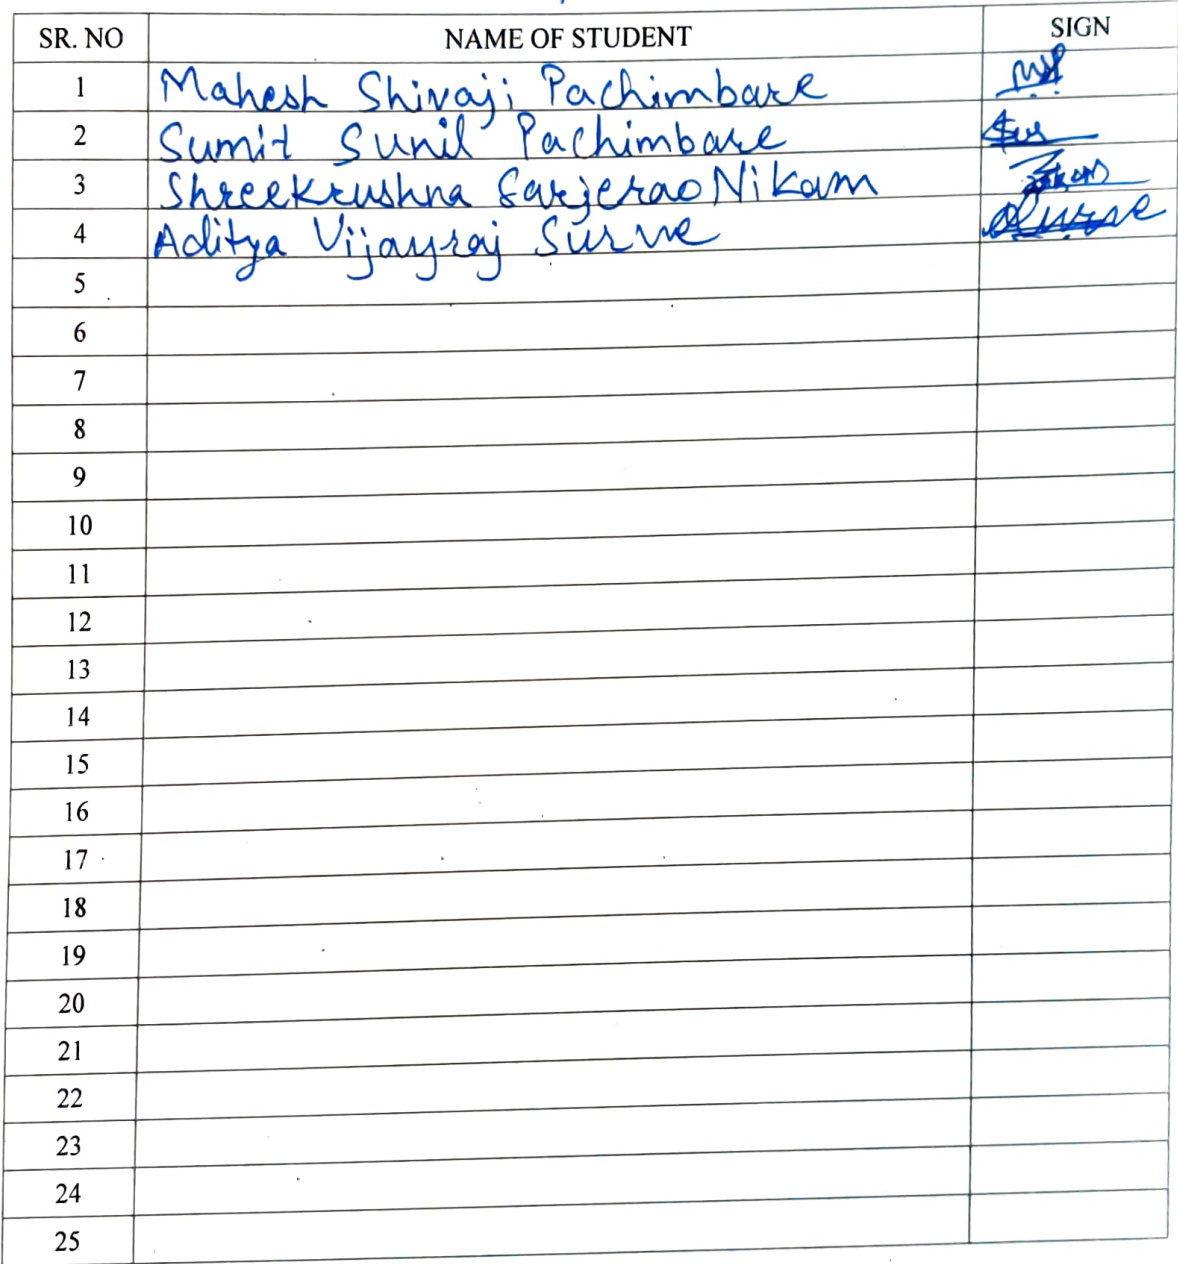 SR. NO NAME OF STUDENT SIGN
1 Mahesh Shivaji Pachimbare
2 Sumit Sunil Pachimbare
3 Shreekrushna Sarjerao Nikam
4 Aditya Vijayraj Surve Surve
5
6
7
8
9
10
11
12
13
14
15
16
17
18
19
20
21
22
23
24
25